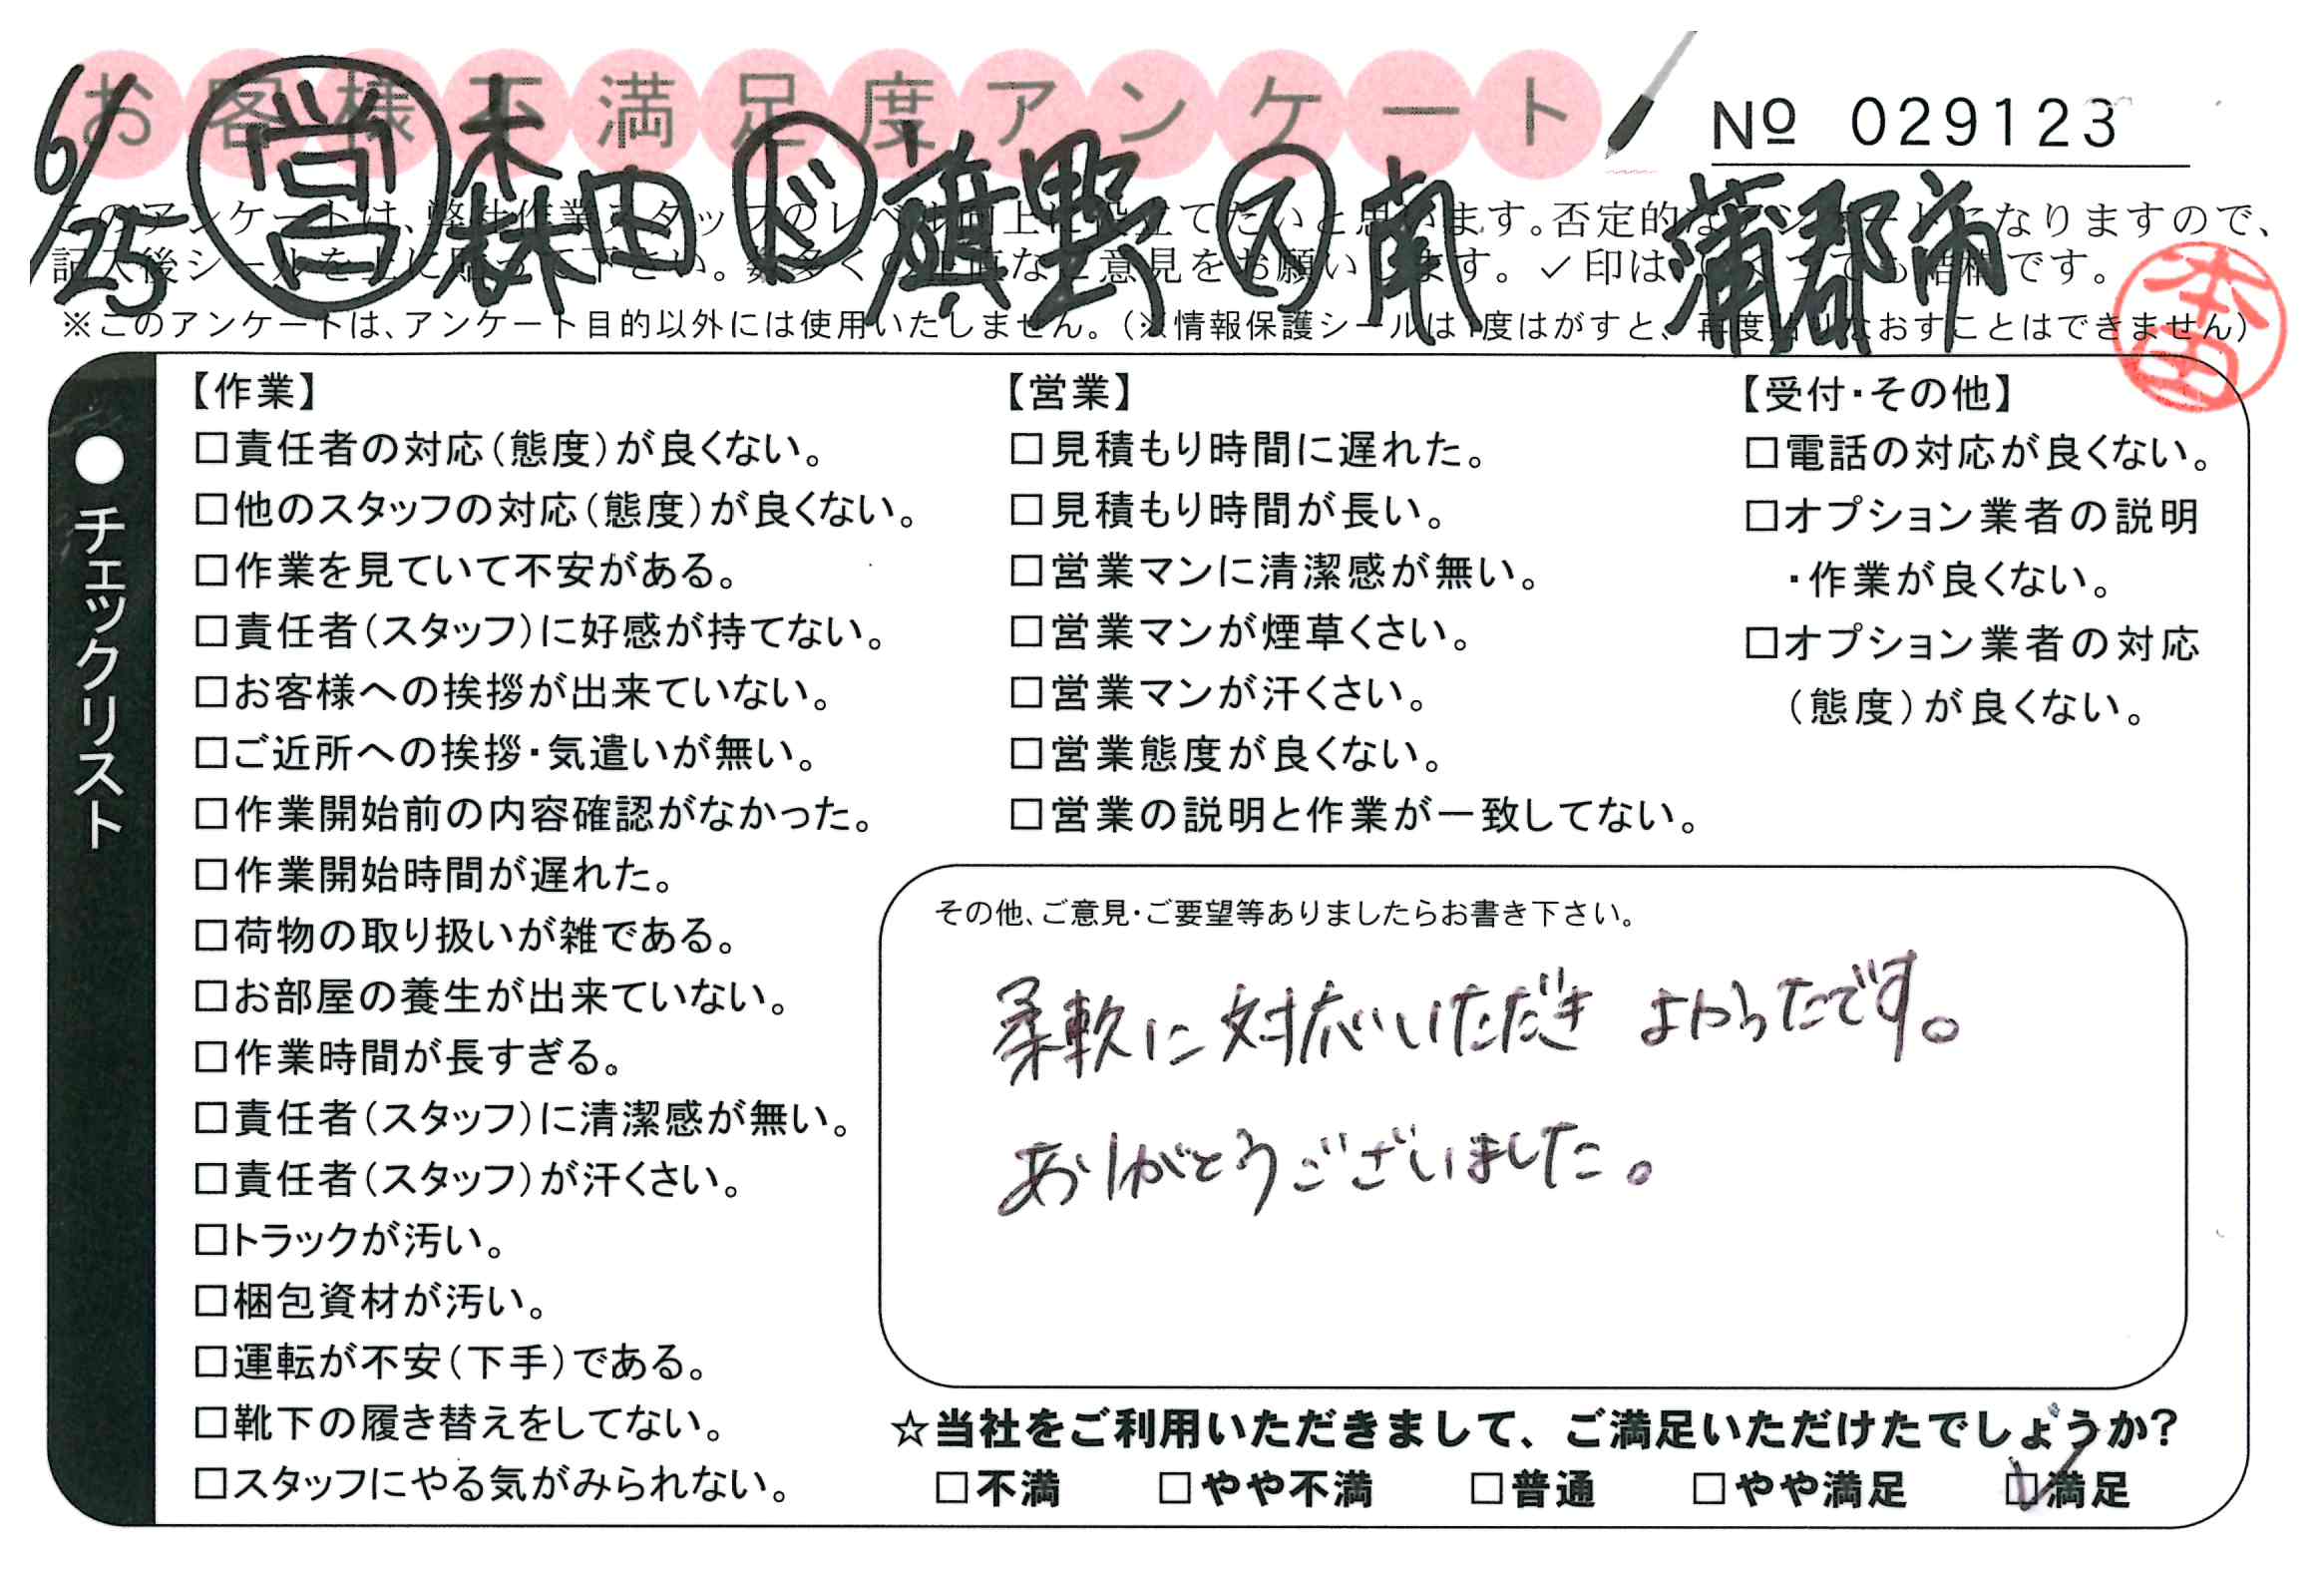 お客様不満足度アンケート
Nº 029123
6/25 営 森田 ド 廣野 ス 南 蒲郡市
このアンケートは、弊社作業スタッフのレベル向上に役立てたいと思います。否定的なになりますので、
記入後シールを上に貼って下さい。数多くの正直なご意見をお願いします。✓印はいくつでも結構です。
※このアンケートは、アンケート目的以外には使用いたしません。(※情報保護シールは1度はがすと、再度貼りなおすことはできません)
本田
●チェックリスト
【作業】
□責任者の対応(態度)が良くない。
□他のスタッフの対応(態度)が良くない。
□作業を見ていて不安がある。
□責任者(スタッフ)に好感が持てない。
□お客様への挨拶が出来ていない。
□ご近所への挨拶・気遣いが無い。
□作業開始前の内容確認がなかった。
□作業開始時間が遅れた。
□荷物の取り扱いが雑である。
□お部屋の養生が出来ていない。
□作業時間が長すぎる。
□責任者(スタッフ)に清潔感が無い。
□責任者(スタッフ)が汗くさい。
□トラックが汚い。
□梱包資材が汚い。
□運転が不安(下手)である。
□靴下の履き替えをしてない。
□スタッフにやる気がみられない。
【営業】
□見積もり時間に遅れた。
□見積もり時間が長い。
□営業マンに清潔感が無い。
□営業マンが煙草くさい。
□営業マンが汗くさい。
□営業態度が良くない。
□営業の説明と作業が一致してない。
【受付・その他】
□電話の対応が良くない。
□オプション業者の説明
・作業が良くない。
□オプション業者の対応
(態度)が良くない。
その他、ご意見・ご要望等ありましたらお書き下さい。
柔軟に対応いただき よかったです。
ありがとうございました。
☆当社をご利用いただきまして、ご満足いただけたでしょうか?
□不満 □やや不満 □普通 □やや満足 ☑満足